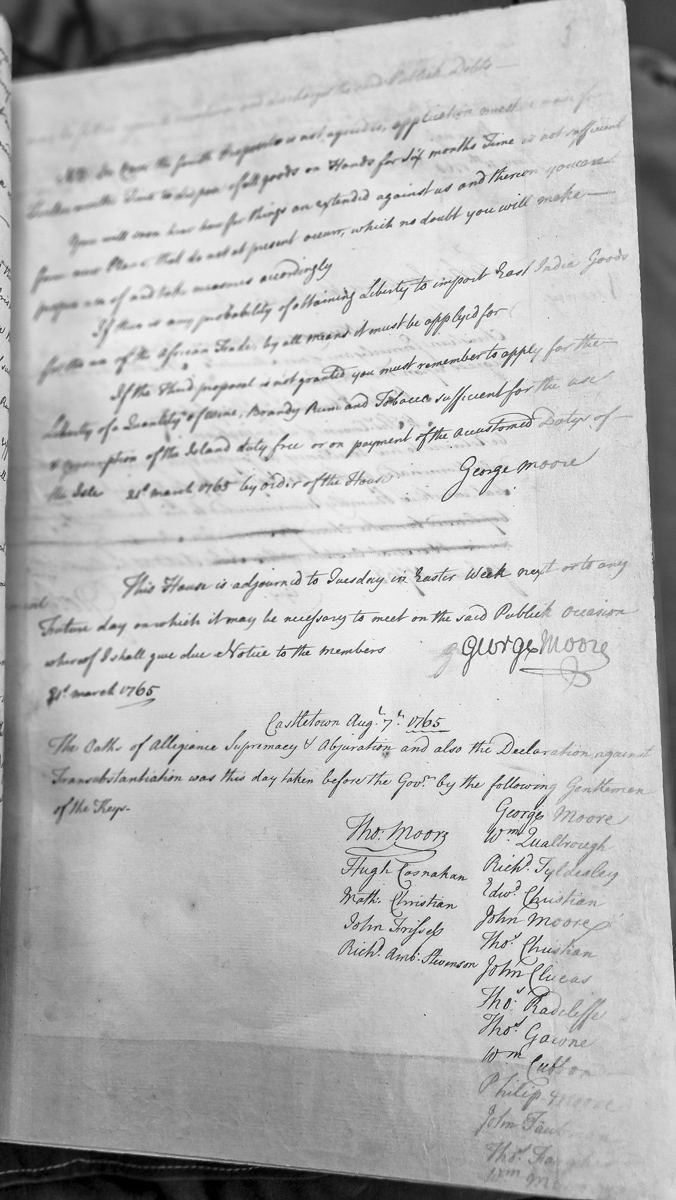 and discharge the said Publick Debts
NB. In Case the fourth Proposal is not agreed to, application must be made for
Twelve months Time to dispose of all goods on Hands for Six months Time is not sufficient
You will soon hear how far things are extended against us and thereon you can
form new Plans, that do not at present occurr, which no doubt you will make
proper use of and take measures accordingly
If there is any probability of attaining Liberty to import East India Goods
for the use of the African Trade, by all means it must be applyed for
If the Third proposal is not granted you must remember to apply for the
Liberty of a Quantity of Wine, Brandy Rum and Tobacco sufficient for the use
& consumption of the Island duty free or on payment of the accustomed Dutys of
the Isle 21st march 1765 by order of the House
George Moore
This House is adjourned to Tuesday in Easter Week next or to any
Future day on which it may be necessary to meet on the said Publick Occasion
whereof I shall give due Notice to the members
George Moore
21st march 1765
Castletown Augt. 7th. 1765
The Oaths of Allegiance Supremacy & Abjuration and also the Declaration against
Transubstantiation was this day taken before the Govr. by the following Gentlemen
of the Keys-
Tho. Moore
Hugh Cosnahan
Math. Christian
John Frissell
Richd. Amb. Stevenson
George Moore
Wm Qualtrough
Richd. Tyldesley
Edwd. Christian
John Moore
Thos. Christian
John Clucas
Thos. Radcliffe
Thos. Gawne
Wm Cubbon
Philip Moore
John Taubman
Thos.
Wm